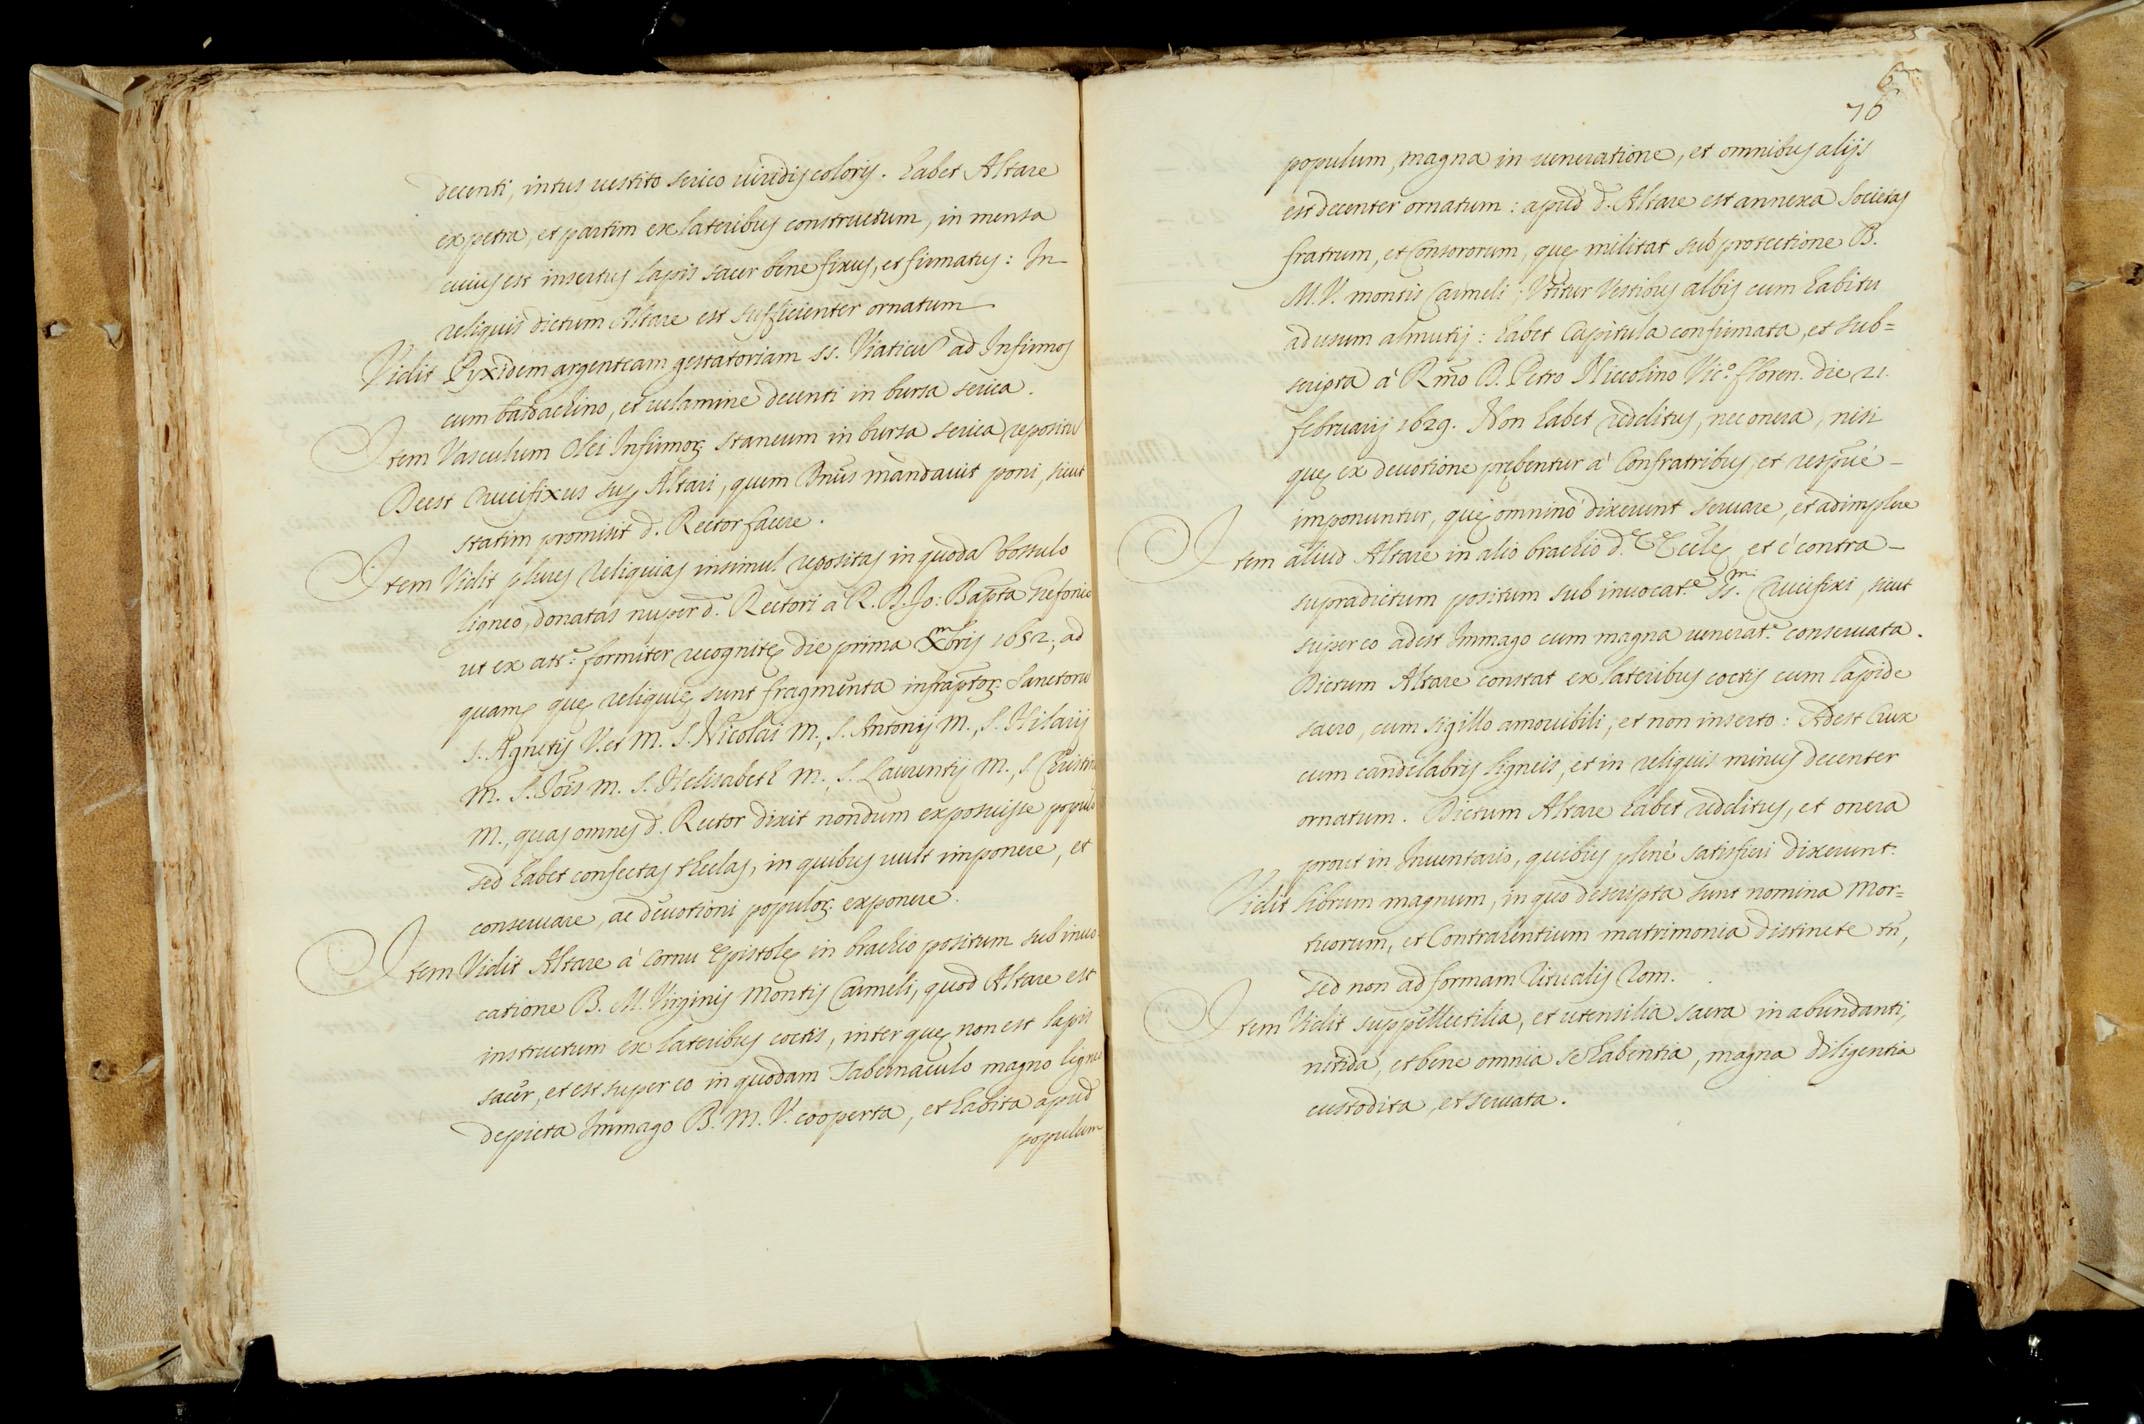 decenti, intus vestito serico viridis coloris. habet Altare
ex petra, et partim ex lateribus constructum, in mensa
cuius est insertus lapis sacer bene fixus, et firmatus: In
reliquis dictum Altare est sufficienter ornatum
Vidit Pyxidem argenteam gestatoriam ss. Viaticũ ad Infirmos
cum baldachino, et velamine decenti in bursa serica.
Item Vasculum Olei Infirmoꝝ staneum in bursa serica repositũ
Deest Crucifixus suꝑ Altari, quem Dnus mandavit poni, sicut
statim promisit d. Rector facere.
Item Vidit plures reliquias insimul repositas in quodã bossulo
ligneo, donatas nuper d. Rectori a R. D. Jo: Bapta
ut ex att.e formiter recognitę die prima Xmbris 1652; ad
quam, quę reliquię sunt fragmenta infraptoꝝ Sanctorũ
S. Agnetis V. et M. S. Nicolai M., S. Antonij M., S. Hilarij
M. S. Jois M. S. Helisabeth M., S. Laurentij M., S. Christin
M., quas omnes d. Rector dixit nondum exposuisse populo
sed habet confectas thecas, in quibus vult imponere, et
conservare, ac devotioni populoꝝ exponere.
Item Vidit Altare à cornu Epistolę in brachio positum sub invo-
catione B. M. Virginis Montis Carmeli, quod Altare est
instructum ex lateribus coctis, inter quę non est lapis
sacer, et est super eo in quodam Tabernaculo magno ligneo
depicta Immago B. M. V. cooperta, et habita apud
populum
76
populum, magna in veneratione, et omnibus alijs
est decenter ornatum: apud d. Altare est annexa Societas
fratrum, et Consororum, quę militat sub protectione B.
M. V. montis Carmeli, Utitur Vestibus albis cum habitu
ad usum almutij: habet Capitula confirmata, et sub=
scripta à Rmo D. Petro Niccolino Vic.o floren. die 21.
februarij 1629. Non habet redditus, nec onera, nisi
quę ex devotione prębentur à Confratribus, et respuè
imponuntur, quę omninò dixerunt servare, et adimplere
Item aliud Altare in alio brachio d.e Ecclę et è contra
supradictum positum sub invocat.e SS.mi Crucifixi, sicut
super eo adest Immago cum magna venerat.e conservata.
Dictum Altare constat ex lateribus coctis cum lapide
sacro, cum sigillo amovibili, et non inserto: Adest Crux
cum candelabris ligneis, et in reliquis minus decenter
ornatum. Dictum Altare habet redditus, et onera
prout in Inventario, quibus plenè satisfieri dixerunt.
Vidit librum magnum, in quo descripta sunt nomina Mor=
tuorum, et Contrahentium matrimonia distincte tñ,
sed non ad formam Ritualis Rom.
Item Vidit suppellectilia, et utensilia sacra in abundanti,
nitida, et bene omnia se habentia, magna diligentia
custodita, et servata.